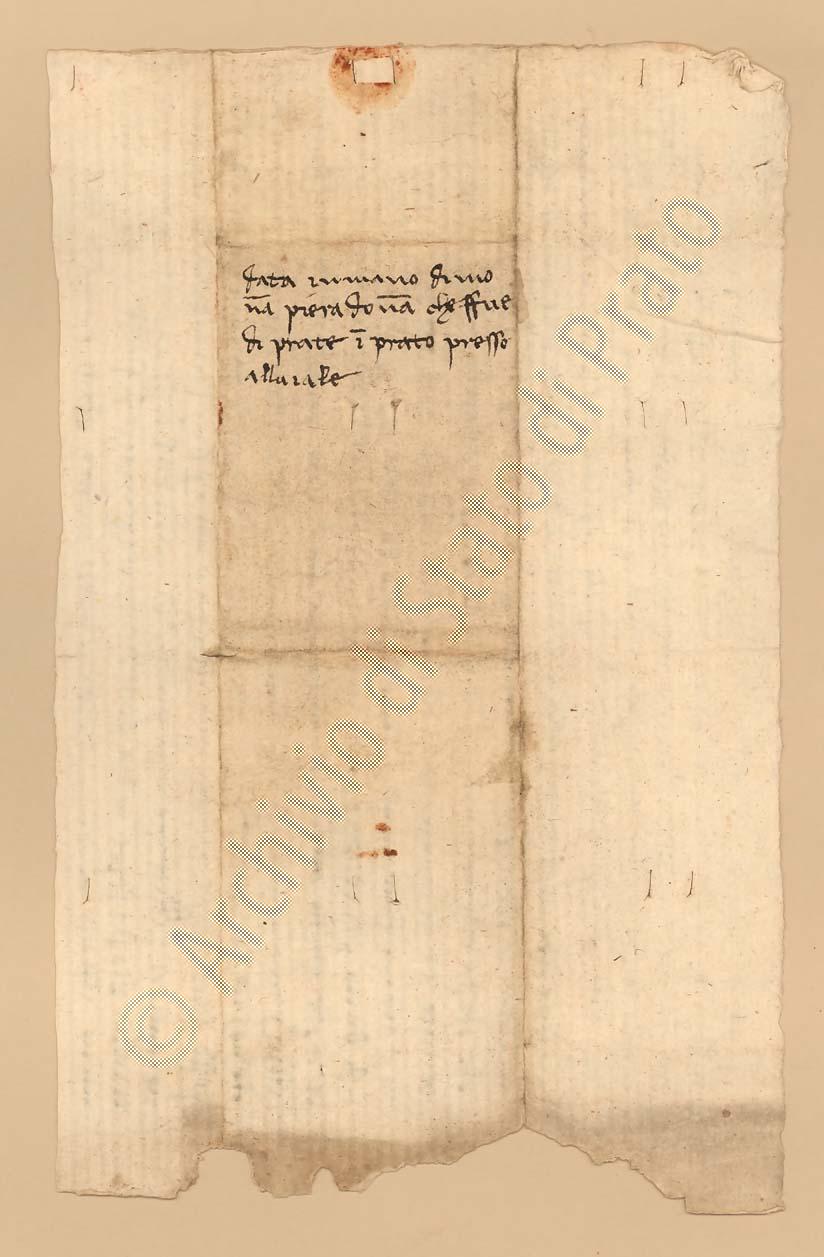 data in mano di mo
na piera donna che ffue
di prate ī prato presso
alluiale
© Archivio di Stato di Prato